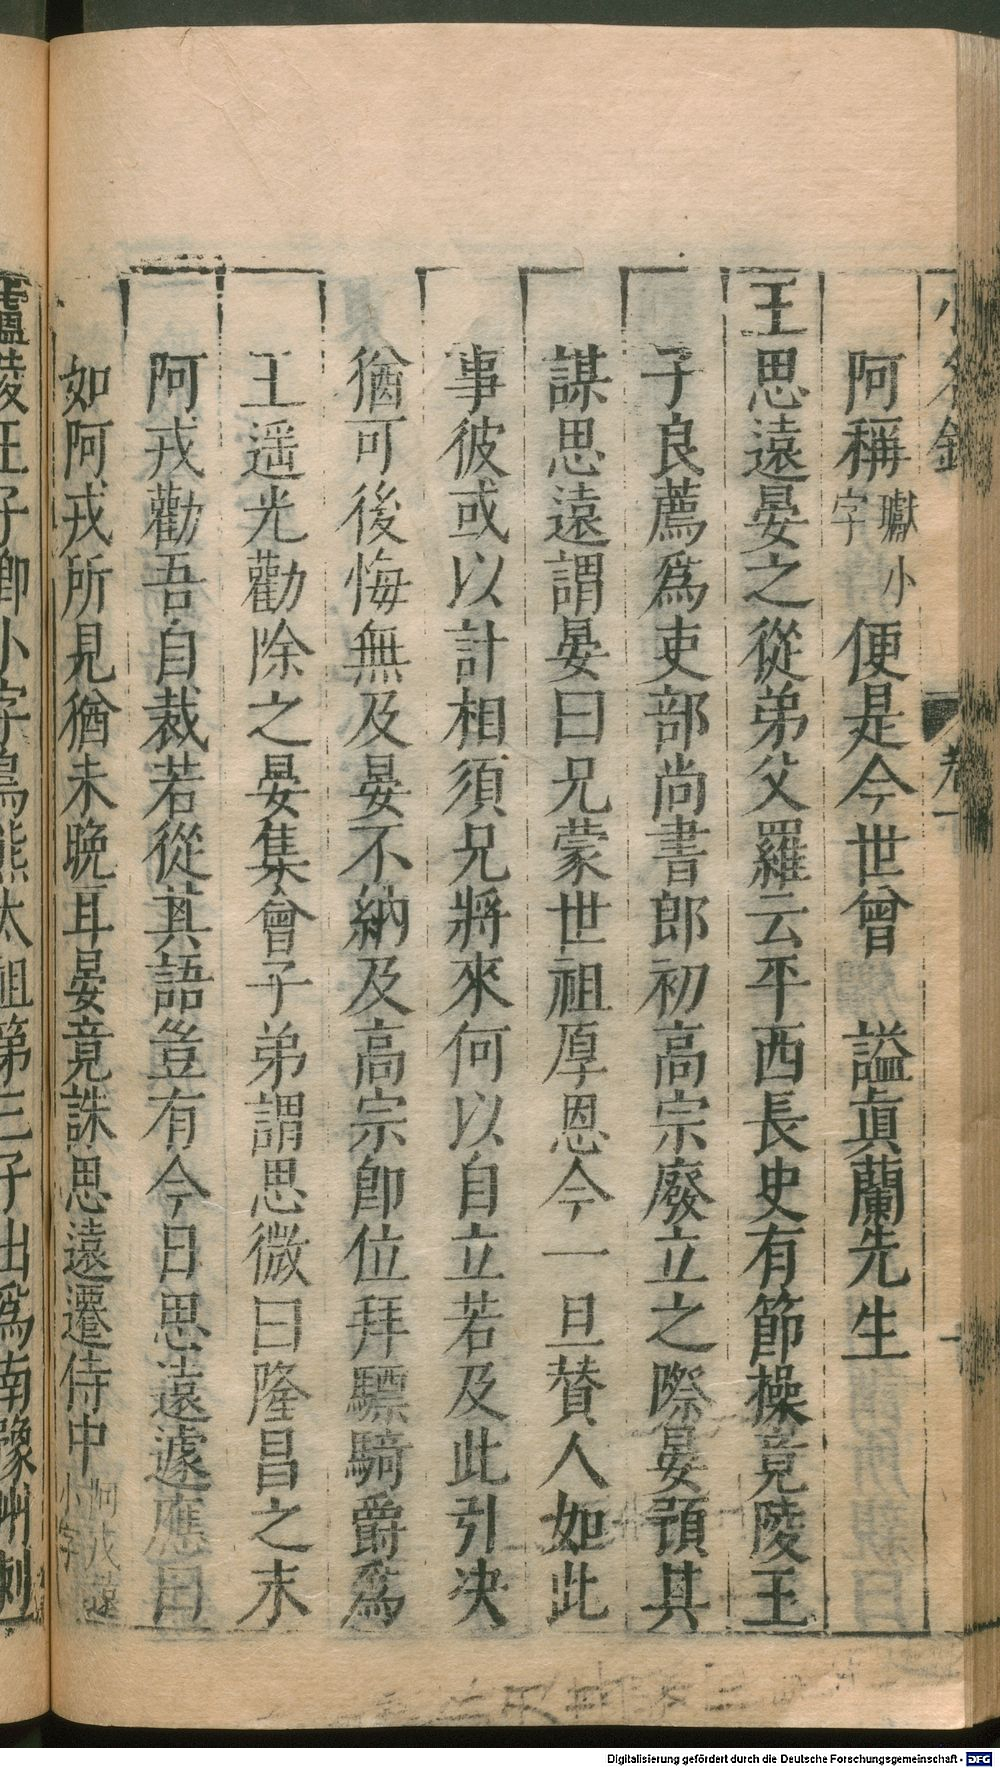 小名錄 卷一
阿稱 瓛小字 便是今世曾 謚眞蘭先生
王思遠晏之從弟父羅云平西長史有節操竟陵王
子良薦爲吏部尚書郎初高宗廢立之際晏預其
謀思遠謂晏曰兄蒙世祖厚恩今一旦賛人如此
事彼或以計相須兄將來何以自立若及此引决
猶可後悔無及晏不納及高宗卽位拜驃騎爵爲
王遥光勸除之晏集會子弟謂思微曰隆昌之末
阿戎勸吾自裁若從其語豈有今日思遠遽應曰
如阿戎所見猶未晩耳晏竟誅思遠遷侍中 阿戎遠小字
陵王子卿小字烏熊太祖第三子出爲南豫州刺
Digitalisierung gefördert durch die Deutsche Forschungsgemeinschaft - DFG